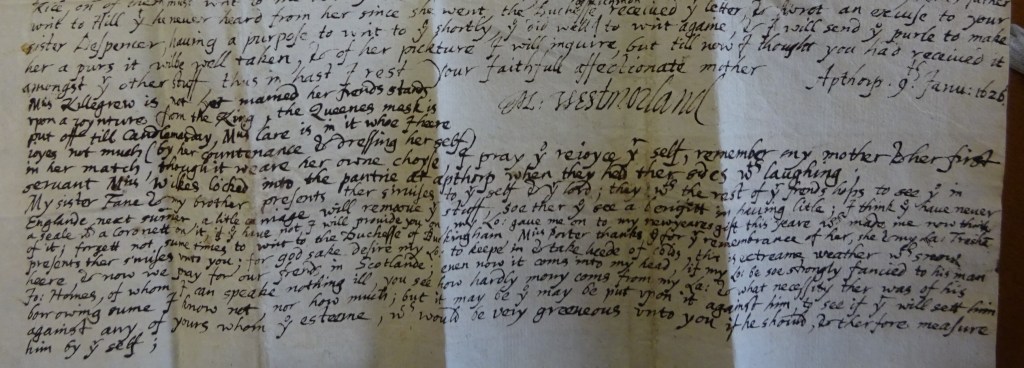 writ to Hill yt he never heard from her since she went, the Duchesse received yr letter & wrot an excuse to your
sister Despencer, having a purpose to writ to yu shortly yu did well to writ againe, & I will send yr purle to make
her a purs it wilbe well taken, & of her pickture I will inquire, but till now I thought you had received it
amongst yr other stuff thus in hast I rest your faithfull affectionate mother Apthorp . 9 . Janu: 1626
M: Westmorland
Mris Killegrew is not yet maried her frends stand
upon a joynture from the King, the Queenes mask is
put off till Candlemasday, Mris Care is in it whoe I heare
joyes not much (by her countenance & dressing her self)
in her match, thought it weare her owne choyse I pray yu rejoyce yr self, remember my mother & her first
servant Mris Wilkes locked into the pantrie at apthorp when they had ther sides wth laughing;
My sister Fane & my brother presents ther services to yr self & yr lord; they wth the rest of yr frends hops to see yu in
Englande next sumer, a litle carriage will remoove yr stuff, soe ther yu see a benifitt in having litle; I think yu have never
a seale & a Coronett on it, if yu have not, I will provide you
of it; forgett not sume times to writ to the Duchesse of Buckingham Mris Porter thanks yu for yr remembrance of her, she & my La:
presents ther services unto you; for god sake desire my lo: to keepe in & take heede of colds, this is extreame weather
heere & now we pay for our frend in Scotland; even now it coms into my head, if my lo: be soe strongly fancied to his man
Jo: Holmes, of whom I can speake nothing ill, you see how hardly mony coms from my La: & what necessity ther was of his
borrowing sume I know not nor how much; but it may be yu may be put upon it against him to see if yu will sett him
against any of yours whom yu esteeme, wch would be very greeveous unto you if he should, & therfore measure
him by yr self;